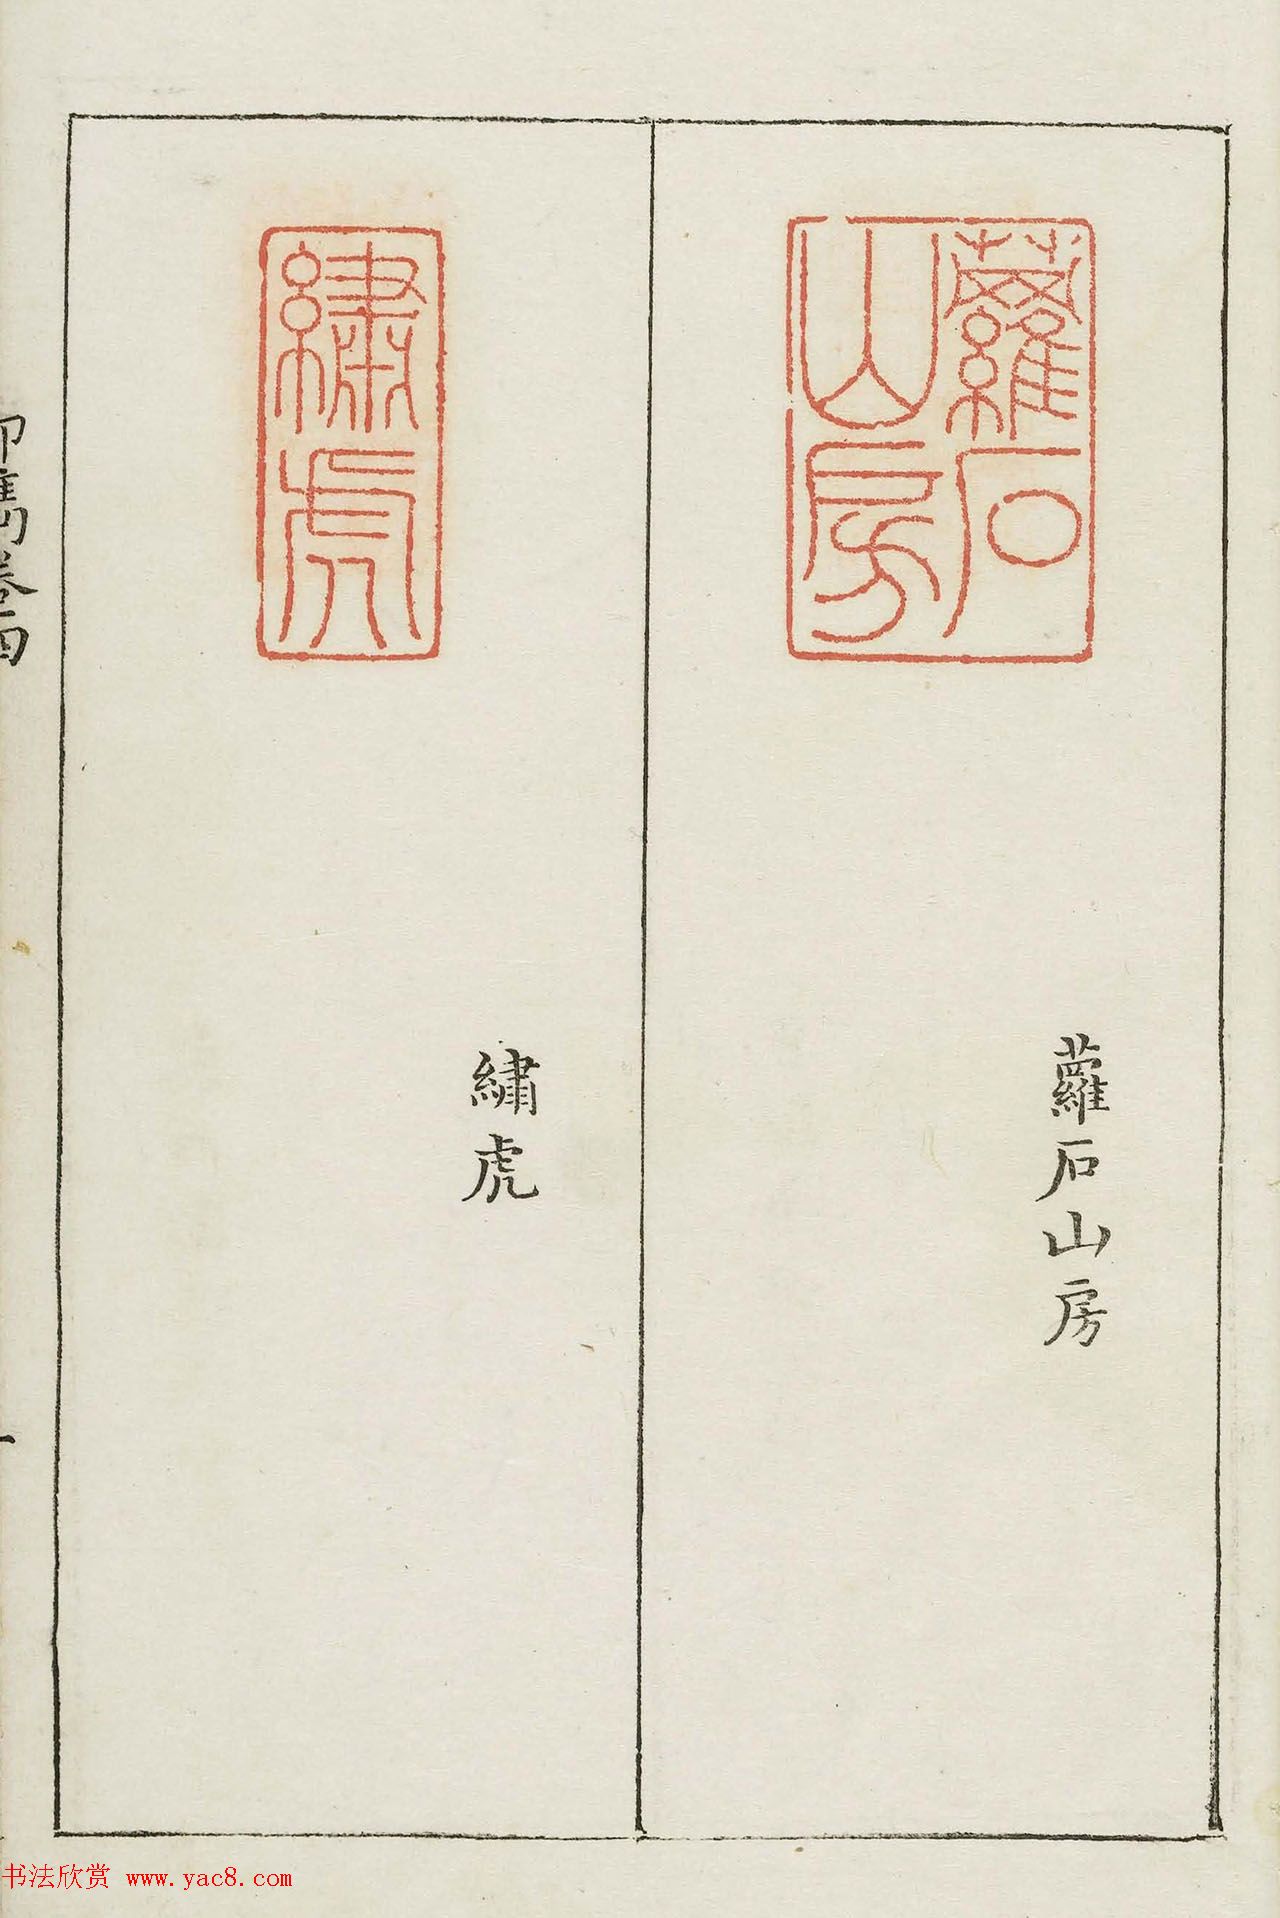 蘿石山房
蘿石山房
繡虎
繡虎
印雋卷四
一
书法欣赏 www.yac8.com